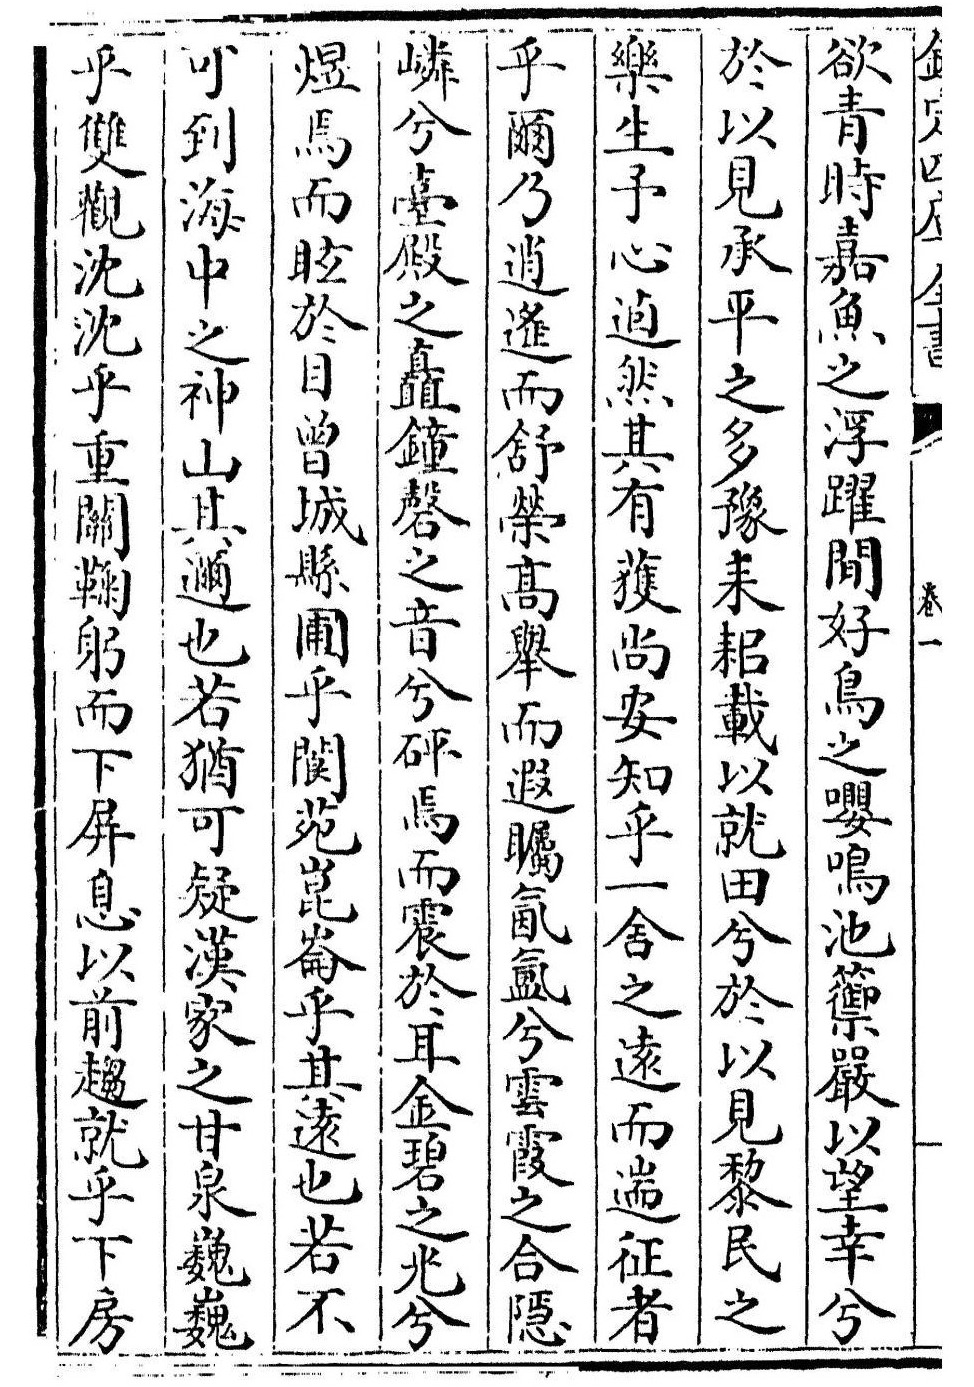 欽定四庫全書
卷一
欲青時嘉魚之浮躍聞好鳥之嚶鳴池籞嚴以望幸兮
於以見承平之多豫耒耜載以就田兮於以見黎民之
樂生予心逌然其有獲尚安知乎一舍之遠而遄征者
乎爾乃逍遙而舒榮高舉而遐矚氤氳兮雲霞之合隱
嶙兮臺殿之矗鐘磬之音兮砰焉而震於耳金碧之光兮
煜焉而眩於目曾城縣圃乎閬苑崑崙乎其遠也若不
可到海中之神山其邇也若猶可疑漢家之甘泉巍巍
乎雙觀沈沈乎重關鞠躬而下屏息以前趨就乎下房